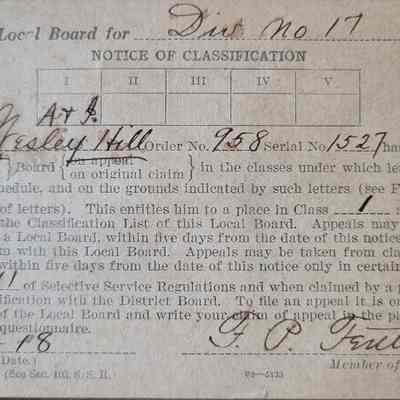 Local Board for Div No 17
NOTICE OF CLASSIFICATION
I II III IV V
A & J
Wesley Hill Order No. 958 Serial No 1527 has
} Board { on appeal
on original claim } in the classes under which le
hedule, and on the grounds indicated by such letters (see F
of letters). This entitles him to a place in Class 1 s
the Classification List of this Local Board. Appeals may
a Local Board, within five days from the date of this notice
m with this Local Board. Appeals may be taken from clas
within five days from the date of this notice only in certain
of Selective Service Regulations and when claimed by a p
tification with the District Board. To file an appeal it is o
of the Local Board and write your claim of appeal in the p
questionnaire.
18 F. P.
Date.) Member of
(See Sec. 103, S. S. R.)